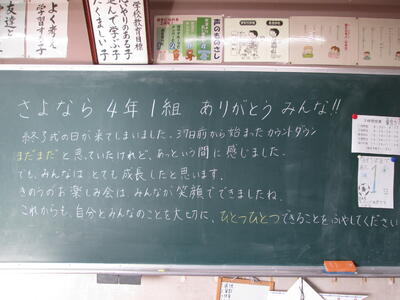 よく考え
学習する子
友達と
学校教育目標
心ゆたかな子
進んで学ぶ子
たくましい子
声のものさし
さよなら 4年1組 ありがとう みんな!!
終了式の日が来てしまいました。37日前から始まったカウントダウン
まだまだ と思っていたけれど、あっという間に感じました。
でも、みんなは とても 成長したと思います。
きのうのお楽しみ会は、みんなが笑顔でできましたね。
これからも、自分とみんなのことを大切に、ひとつひとつできることをふやしてください